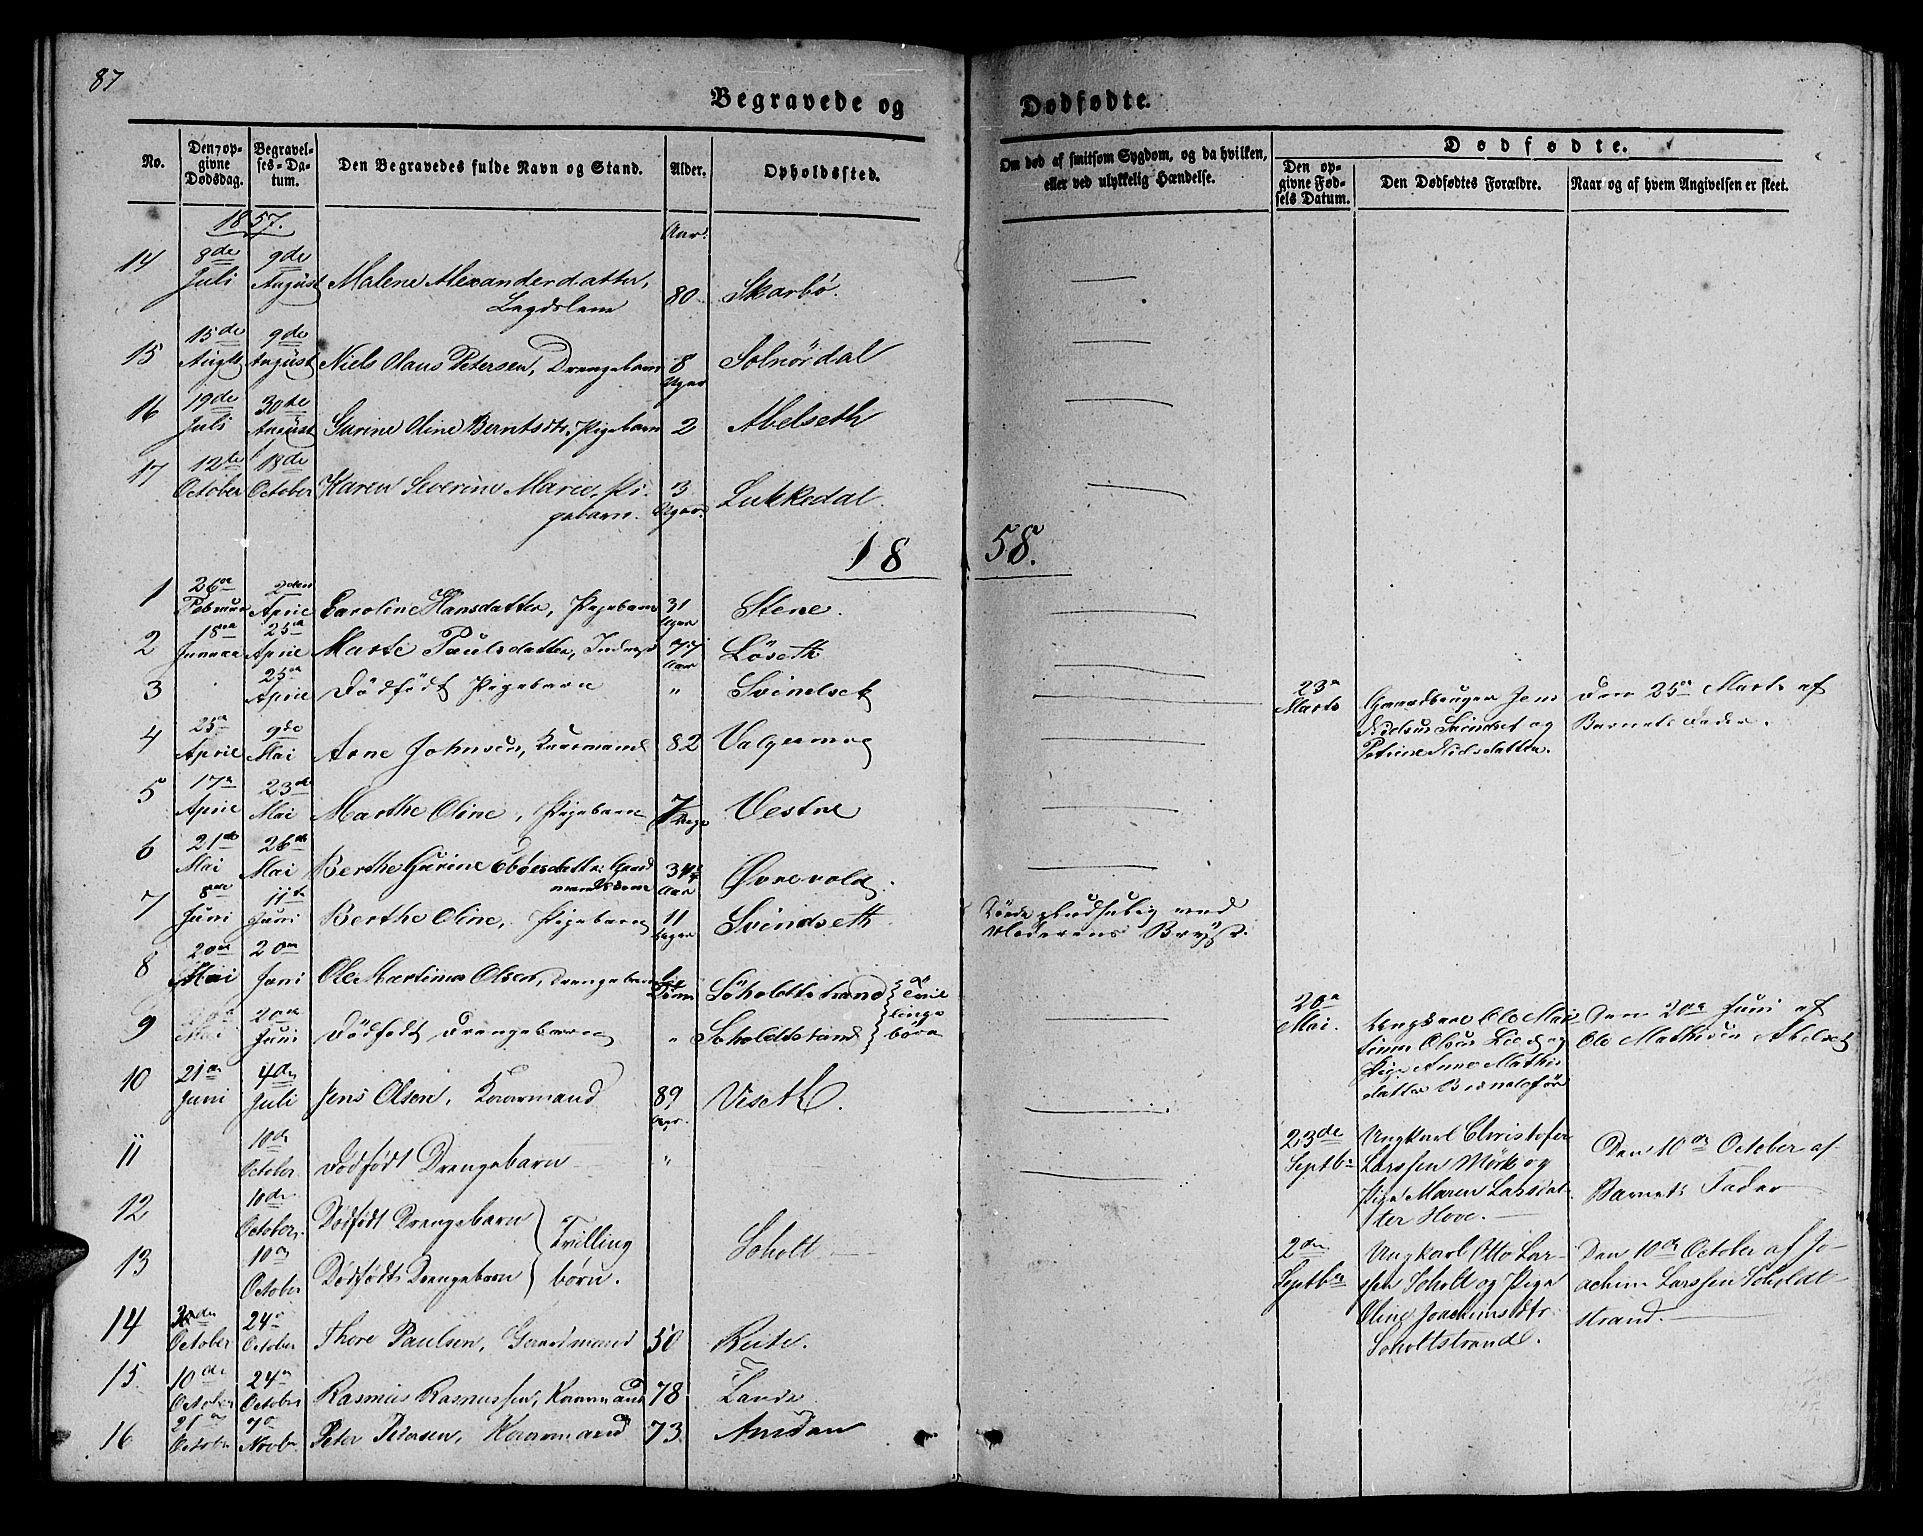 87
Begravede og Dødfødte.
No.
Den opgivne Dødsdag.
Begravelses-Datum.
Den Begravedes fulde Navn og Stand.
Alder.
Opholdssted.
Om død af smitsom Sygdom, og da hvilken,
eller ved ulykkelig Hændelse.
Dødfødte.
Den opgivne Fødsels Datum.
Den Dødfødtes Forældre.
Naar og af hvem Angivelsen er skeet.
1857. Aar.
14 8de Juli 9de August Malene Alexanderdatter, 80 Skarbø.
Lægdslem
15 15de Augt 9de August Niels Olaus Petersen, Drengebarn 8 Uger Solnørdal
16 19de Juli 30te August Gurine Oline Berntsdtr. Pigebarn 2 Abelseth
17 12te October 18de October Karen Severine Marie, Pi- 3 Uger Lukkedal.
gebarn.
1858.
1 26de Februar 2den April Caroline Hansdatter, Pigebarn 31 Uger Stene.
2 18de Januar 25de April Marte Paulsdatter, 77 Aar Løseth
3 25de April Dödfödt Pigebarn " Svindset 23de Marts Gaardbruger Jens Den 25de Marts af
Nielsen Svindset og Barnets Fader.
Petrine Nielsdatter.
4 25de April 9de Mai Arne Johnsen, Kaarmand 82 Valgermog
5 17de April 23de Mai Marthe Oline, Pigebarn 7 Dage Vestre
6 21de Mai 26de Mai Berthe Gurine Gaard 34 Aar Øvrevold.
mandskone
7 8de Juni 11te Juni Berthe Oline, Pigebarn 11 Uger Svindseth ved
Moderens Bryst.
8 20de Mai 20de Juni Ole Martinus Olsen, Drengebarn Söholtstrand Tvil
9 20de Mai 20de Juni Dödfödt Drengebarn " Soholdtstrand linge börn 20de Mai. Ungkarl Ole Mar Den 20de Juni af
tinus Olsen Lied og Ole Mathisen Abelset
Pige Anne Mathis
datter
10 21de Juni 4de Juli Jens Olsen, Kaarmand 89 Aar. Viseth.
11 10de October Dödfödt Drengebarn " 23de Septbr Ungkarl Christofer Den 10de October af
Larssen Mørk og Barnets Fader
Pige Maren Larsdat-
ter Hove.
12 10de October Dödfödt Drengebarn Tvilling
13 10de October Dödfödt Drengebarn börn. Soholt 2den Septber Ungkarl Otto Lar- Den 10de October af Jo-
sen Soholt og Pige achim Larssen Soholdt
Oline Joachimsdtr. strand.
Soholtstrand.
14 October 24de October Thore Paulsen, Gaardmand 50 Reite.
15 10de October 24de October Rasmus Rasmussen, Kaarmand 78 Lande
16 21de Octobr 7de Novbr Peter Pedersen, Kaarmand 73 Amdam